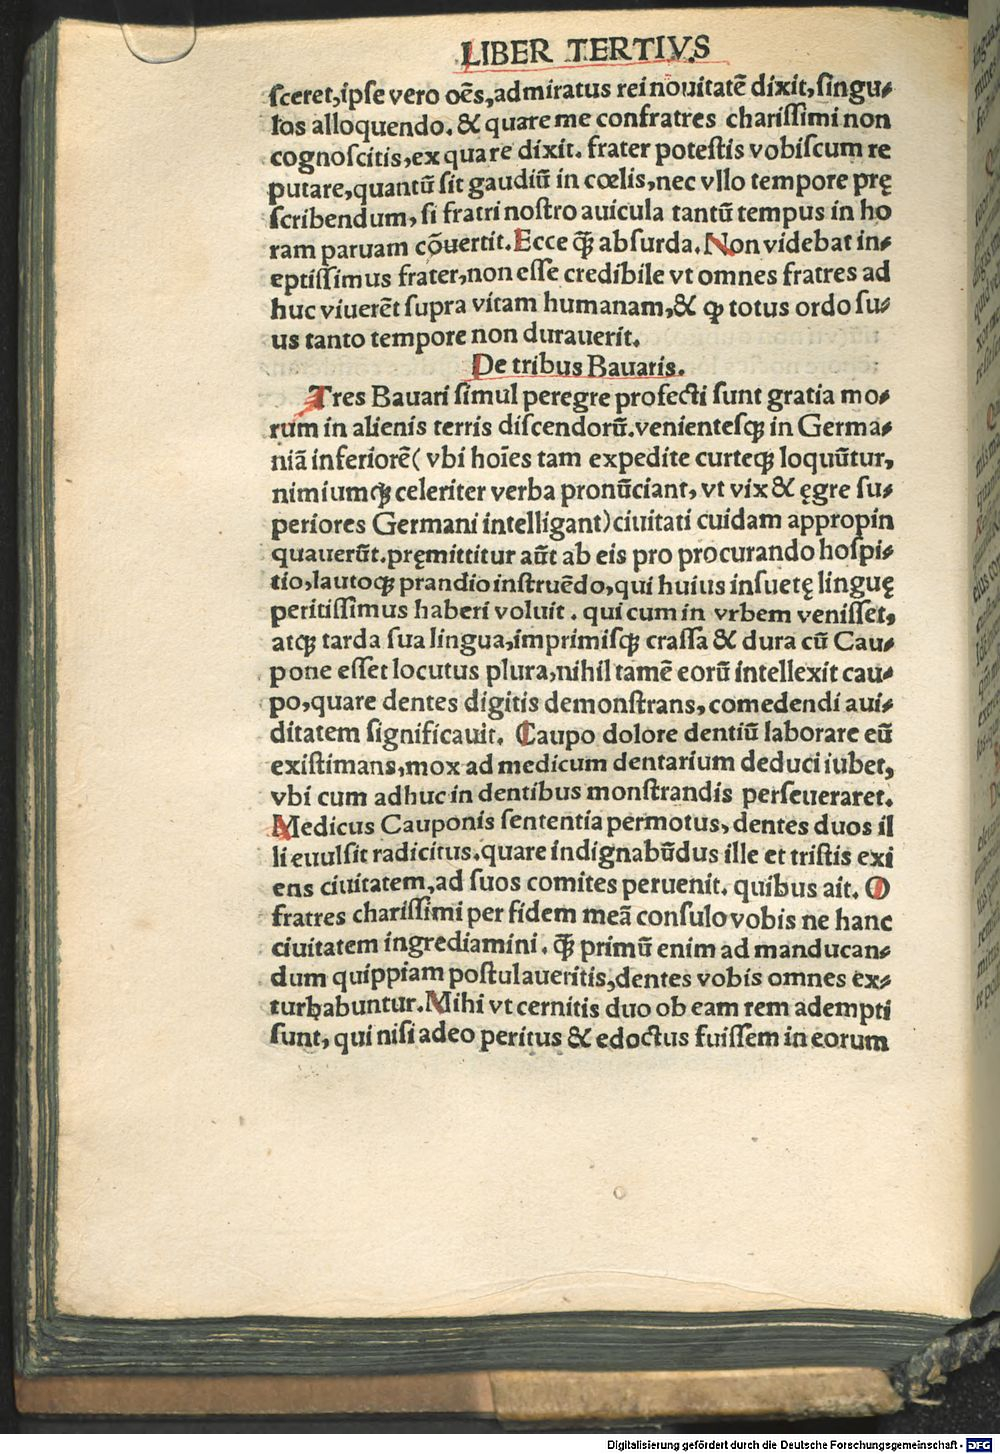 LIBER TERTIVS
ſceret,ipſe vero oēs,admiratus rei nouitatē dixit,ſingu⸗
los alloquendo.& quare me confratres chariſſimi non
cognoſcitis,ex quare dixit. frater poteſtis vobiſcum re
putare,quantū ſit gaudiū in cœlis,nec vllo tempore prę
ſcribendum, ſi fratri noſtro auicula tantū tempus in ho
ram paruam cōuertit.Ecce q̄ȝ abſurda.Non videbat in⸗
eptiſſimus frater,non eſſe credibile vt omnes fratres ad
huc viuerēt ſupra vitam humanam,& ꝙ totus ordo ſu⸗
us tanto tempore non durauerit.
De tribus Bauaris.
Tres Bauari ſimul peregre profecti ſunt gratia mo⸗
rum in alienis terris diſcendorū.venienteſqȝ in Germa⸗
niā inferiorē( vbi hoīes tam expedite curteqȝ loquūtur,
nimiumqȝ celeriter verba pronūciant, vt vix & ęgre ſu⸗
periores Germani intelligant)ciuitati cuidam appropin
quauerūt.pręmittitur aūt ab eis pro procurando hoſpi⸗
tio,lautoqȝ prandio inſtruēdo,qui huius inſuetę linguę
peritiſſimus haberi voluit . qui cum in vrbem veniſſet,
atqȝ tarda ſua lingua,imprimiſqȝ craſſa & dura cū Cau⸗
pone eſſet locutus plura,nihil tamē eorū intellexit cau⸗
po,quare dentes digitis demonſtrans,comedendi aui⸗
ditatem ſignificauit. Caupo dolore dentiū laborare eū
exiſtimans,mox ad medicum dentarium deduci iubet,
vbi cum adhuc in dentibus monſtrandis perſeueraret.
Medicus Cauponis ſententia permotus,dentes duos il
li euulſit radicitus.quare indignabūdus ille et triſtis exi
ens ciuitatem,ad ſuos comites peruenit. quibus ait. O
fratres chariſſimi per fidem meā conſulo vobis ne hanc
ciuitatem ingrediamini . q̄ȝ primū enim ad manducan⸗
dum quippiam poſtulaueritis,dentes vobis omnes ex⸗
turbabuntur.Mihi vt cernitis duo ob eam rem adempti
ſunt, qui niſi adeo peritus & edoctus fuiſſem in eorum
Digitalisierung gefördert durch die Deutsche Forschungsgemeinschaft - DFG